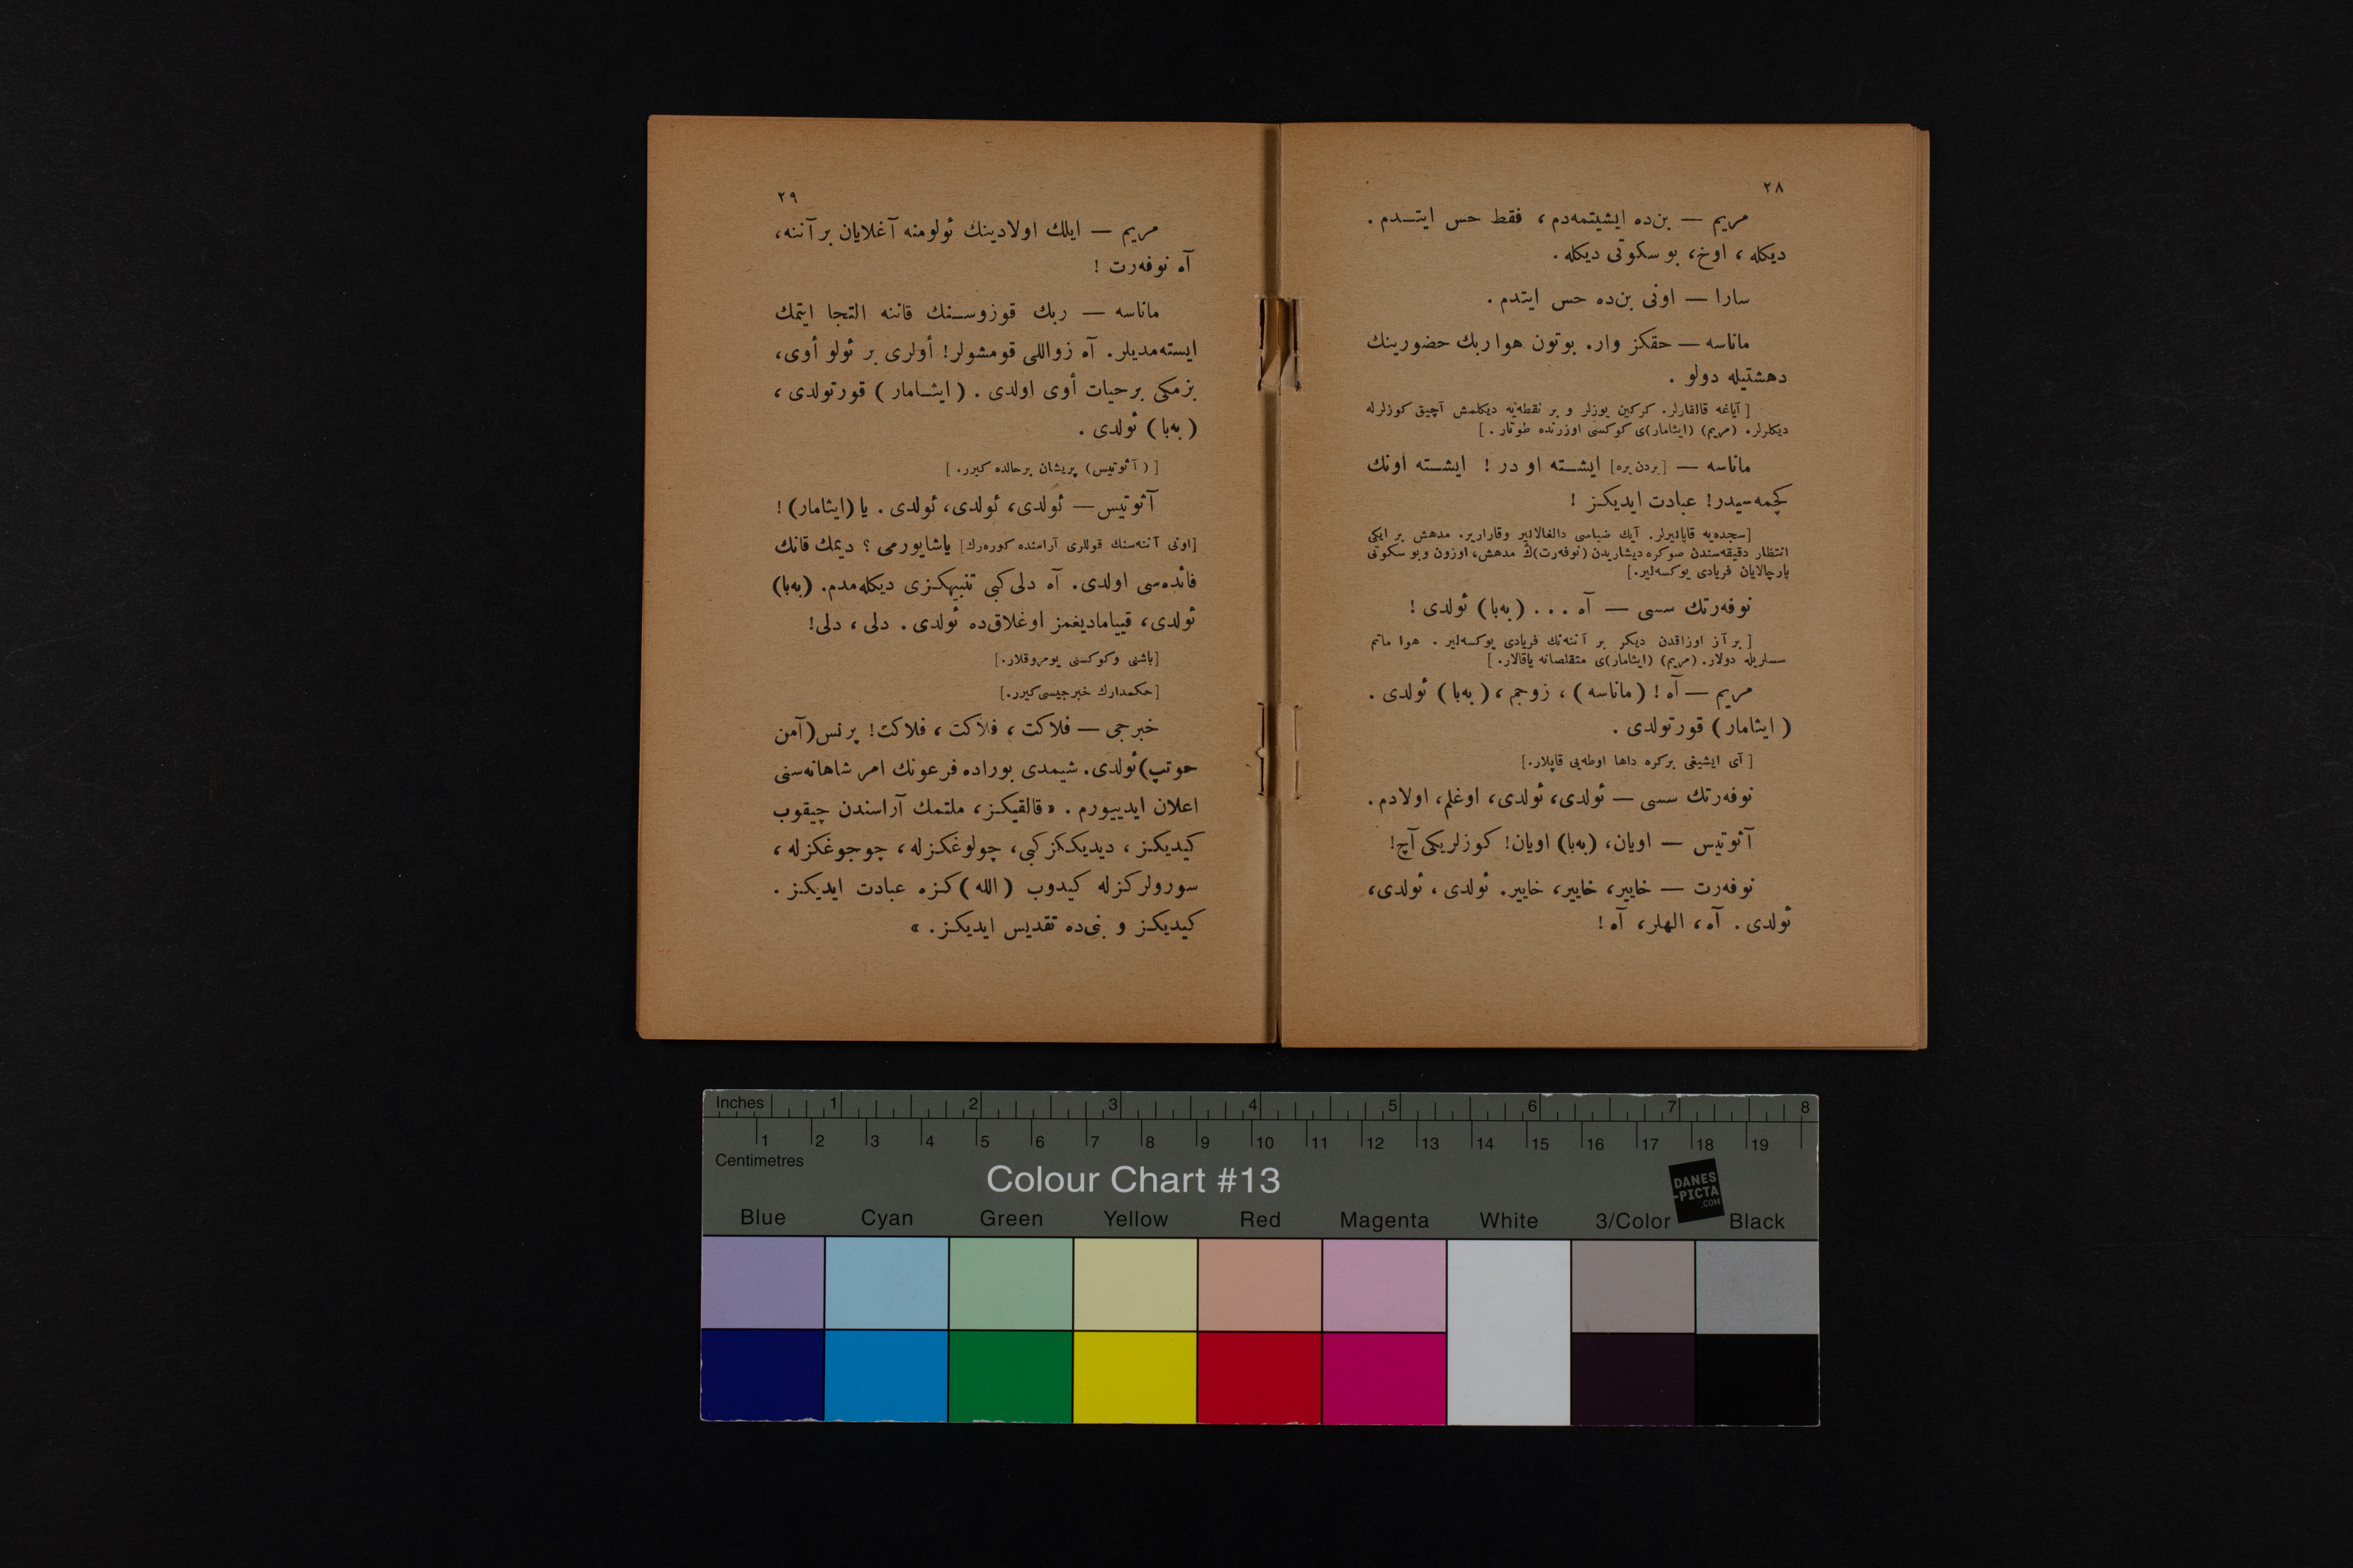 ٢٨
مريم — بن‌ده ايشيتمه‌دم ، فقط حس ايتـدم .
ديكله ، اوخ، بو سكوتى ديكله .
سارا — اونى بن‌ده حس ايتدم .
ماناسه — حقكز وار. بوتون هوا ربك حضورينك
دهشتيله دولو .
[ آياغه قالقارلر. كركين يوزلر و بر نقطه‌يه ديكلمش آچيق كوزلرله
ديكلرلر. (مريم) (ايثامار)ى كوكسى اوزرنده طوتار . ]
ماناسه — [بردن بره] ايشـته او در ! ايشـته اونك
كچمه‌سيدر! عبادت ايديكز !
[سجده‌يه قاپانيرلر. آيك ضياسى دالغالانير وقارارير. مدهش بر ايكى
انتظار دقيقه‌سندن صوكره ديشاريدن (نوفه‌رت)ڭ مدهش، اوزون وبو سكوتى
پارچالايان فريادى يوكسه‌لير.]
نوفه‌رتك سسى — آه . . . (به‌با) ئولدى !
[ بر آز اوزاقدن ديكر بر آننه‌نك فريادى يوكسه‌لير . هوا ماتم
سسلريله دولار. (مريم) (ايثامار)ى متقلصانه ياقالار. ]
مريم — آه ! (ماناسه) ، زوجم ، (به‌با) ئولدى .
(ايثامار) قورتولدى .
[ آى ايشيغى بركره داها اوطه‌يى قاپلار.]
نوفه‌رتك سسى — ئولدى، ئولدى، اوغلم، اولادم.
آئوتيس — اويان، (به‌با) اويان! كوزلريكى آچ!
نوفه‌رت — خايير، خايير، خايير. ئولدى ، ئولدى،
ئولدى . آه ، الهلر، آه !
٢٩
مريم — ايلك اولادينك ئولومنه آغلايان بر آننه،
آه نوفه‌رت !
ماناسه — ربك قوزوسـنك قاننه التجا ايتمك
ايسته‌مديلر. آه زواللى قومشولر! أولرى بر ئولو أوى،
بزمكى برحيات أوى اولدى . (ايثـامار) قورتولدى ،
(به‌با) ئولدى .
[ (آئوتيس) پريشان برحالده كيرر. ]
آئوتيس — ئولدى، ئولدى، ئولدى . يا (ايثامار) !
[اونى آننه‌سنك قوللرى آراسنده كوره‌رك] ياشايورمى ؟ ديمك قانك
فائده‌سى اولدى. آه دلى كبى تنبيهكزى ديكله‌مدم. (به‌با)
ئولدى، قييامادیغمز اوغلاق‌ده ئولدى . دلى ، دلى!
[باشنى وكوكسنى يومروقلار.]
[حكمدارك خبرجيسى كيرر.]
خبرجى — فلاكت ، فلاكت ، فلاكت! پرنس(آمن
حوتپ)ئولدى. شيمدى بوراده فرعونك امر شاهانه‌سنى
اعلان ايدييورم . « قالقيكز، ملتمك آراسندن چيقوب
كيديكز ، ديديككز كبى، چولوغكزله ، چوجوغكزله ،
سورولركزله كيدوب (الله)كـزه عبادت ايديكز .
كيديكز و بنى‌ده تقديس ايديكز. »
Inches 1 2 3 4 5 6 7 8
1 2 3 4 5 6 7 8 9 10 11 12 13 14 15 16 17 18 19
Centimetres
Colour Chart #13
DANES
-PICTA
.COM
Blue Cyan Green Yellow Red Magenta White 3/Color Black